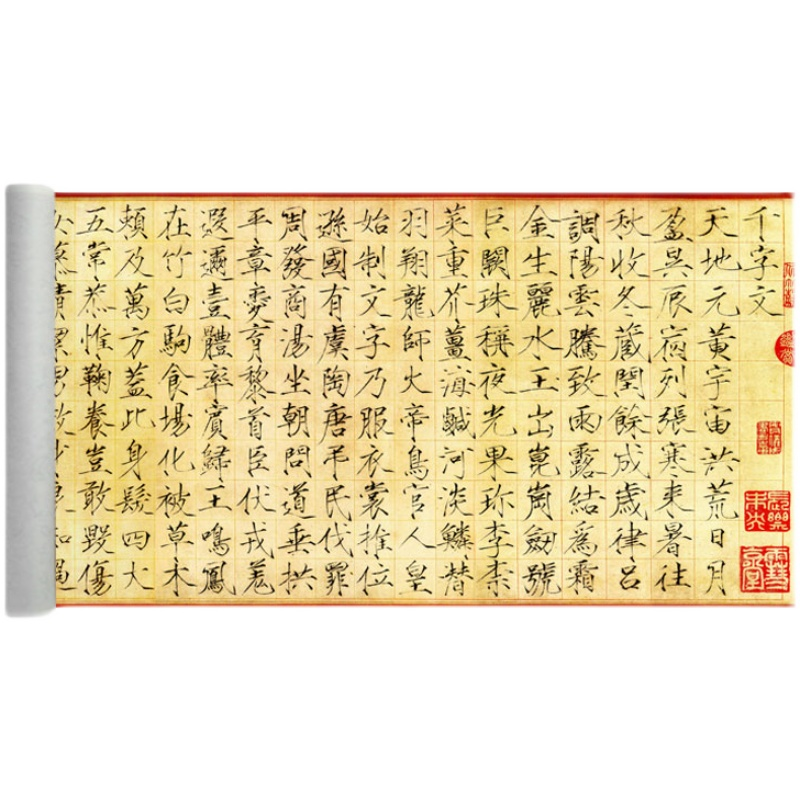 千字文
天地元黃宇宙洪荒日月
盈昃辰宿列張寒来暑往
秋收冬蔵閏餘成歲律呂
調陽雲騰致雨露結爲霜
金生麗水玉出崑崗劒號
巨闕珠稱夜光果珍李柰
菜重芥薑海鹹河淡鱗潛
羽翔龍師火帝鳥官人皇
始制文字乃服衣裳推位
遜國有虞陶唐弔民伐罪
周發商湯坐朝問道垂拱
平章愛育黎首臣伏戎羌
遐邇壹體率賓歸王鳴鳳
在竹白駒食場化被草木
頼及萬方蓋此身髮四大
五常恭惟鞠養豈敢毀傷
長樂未央